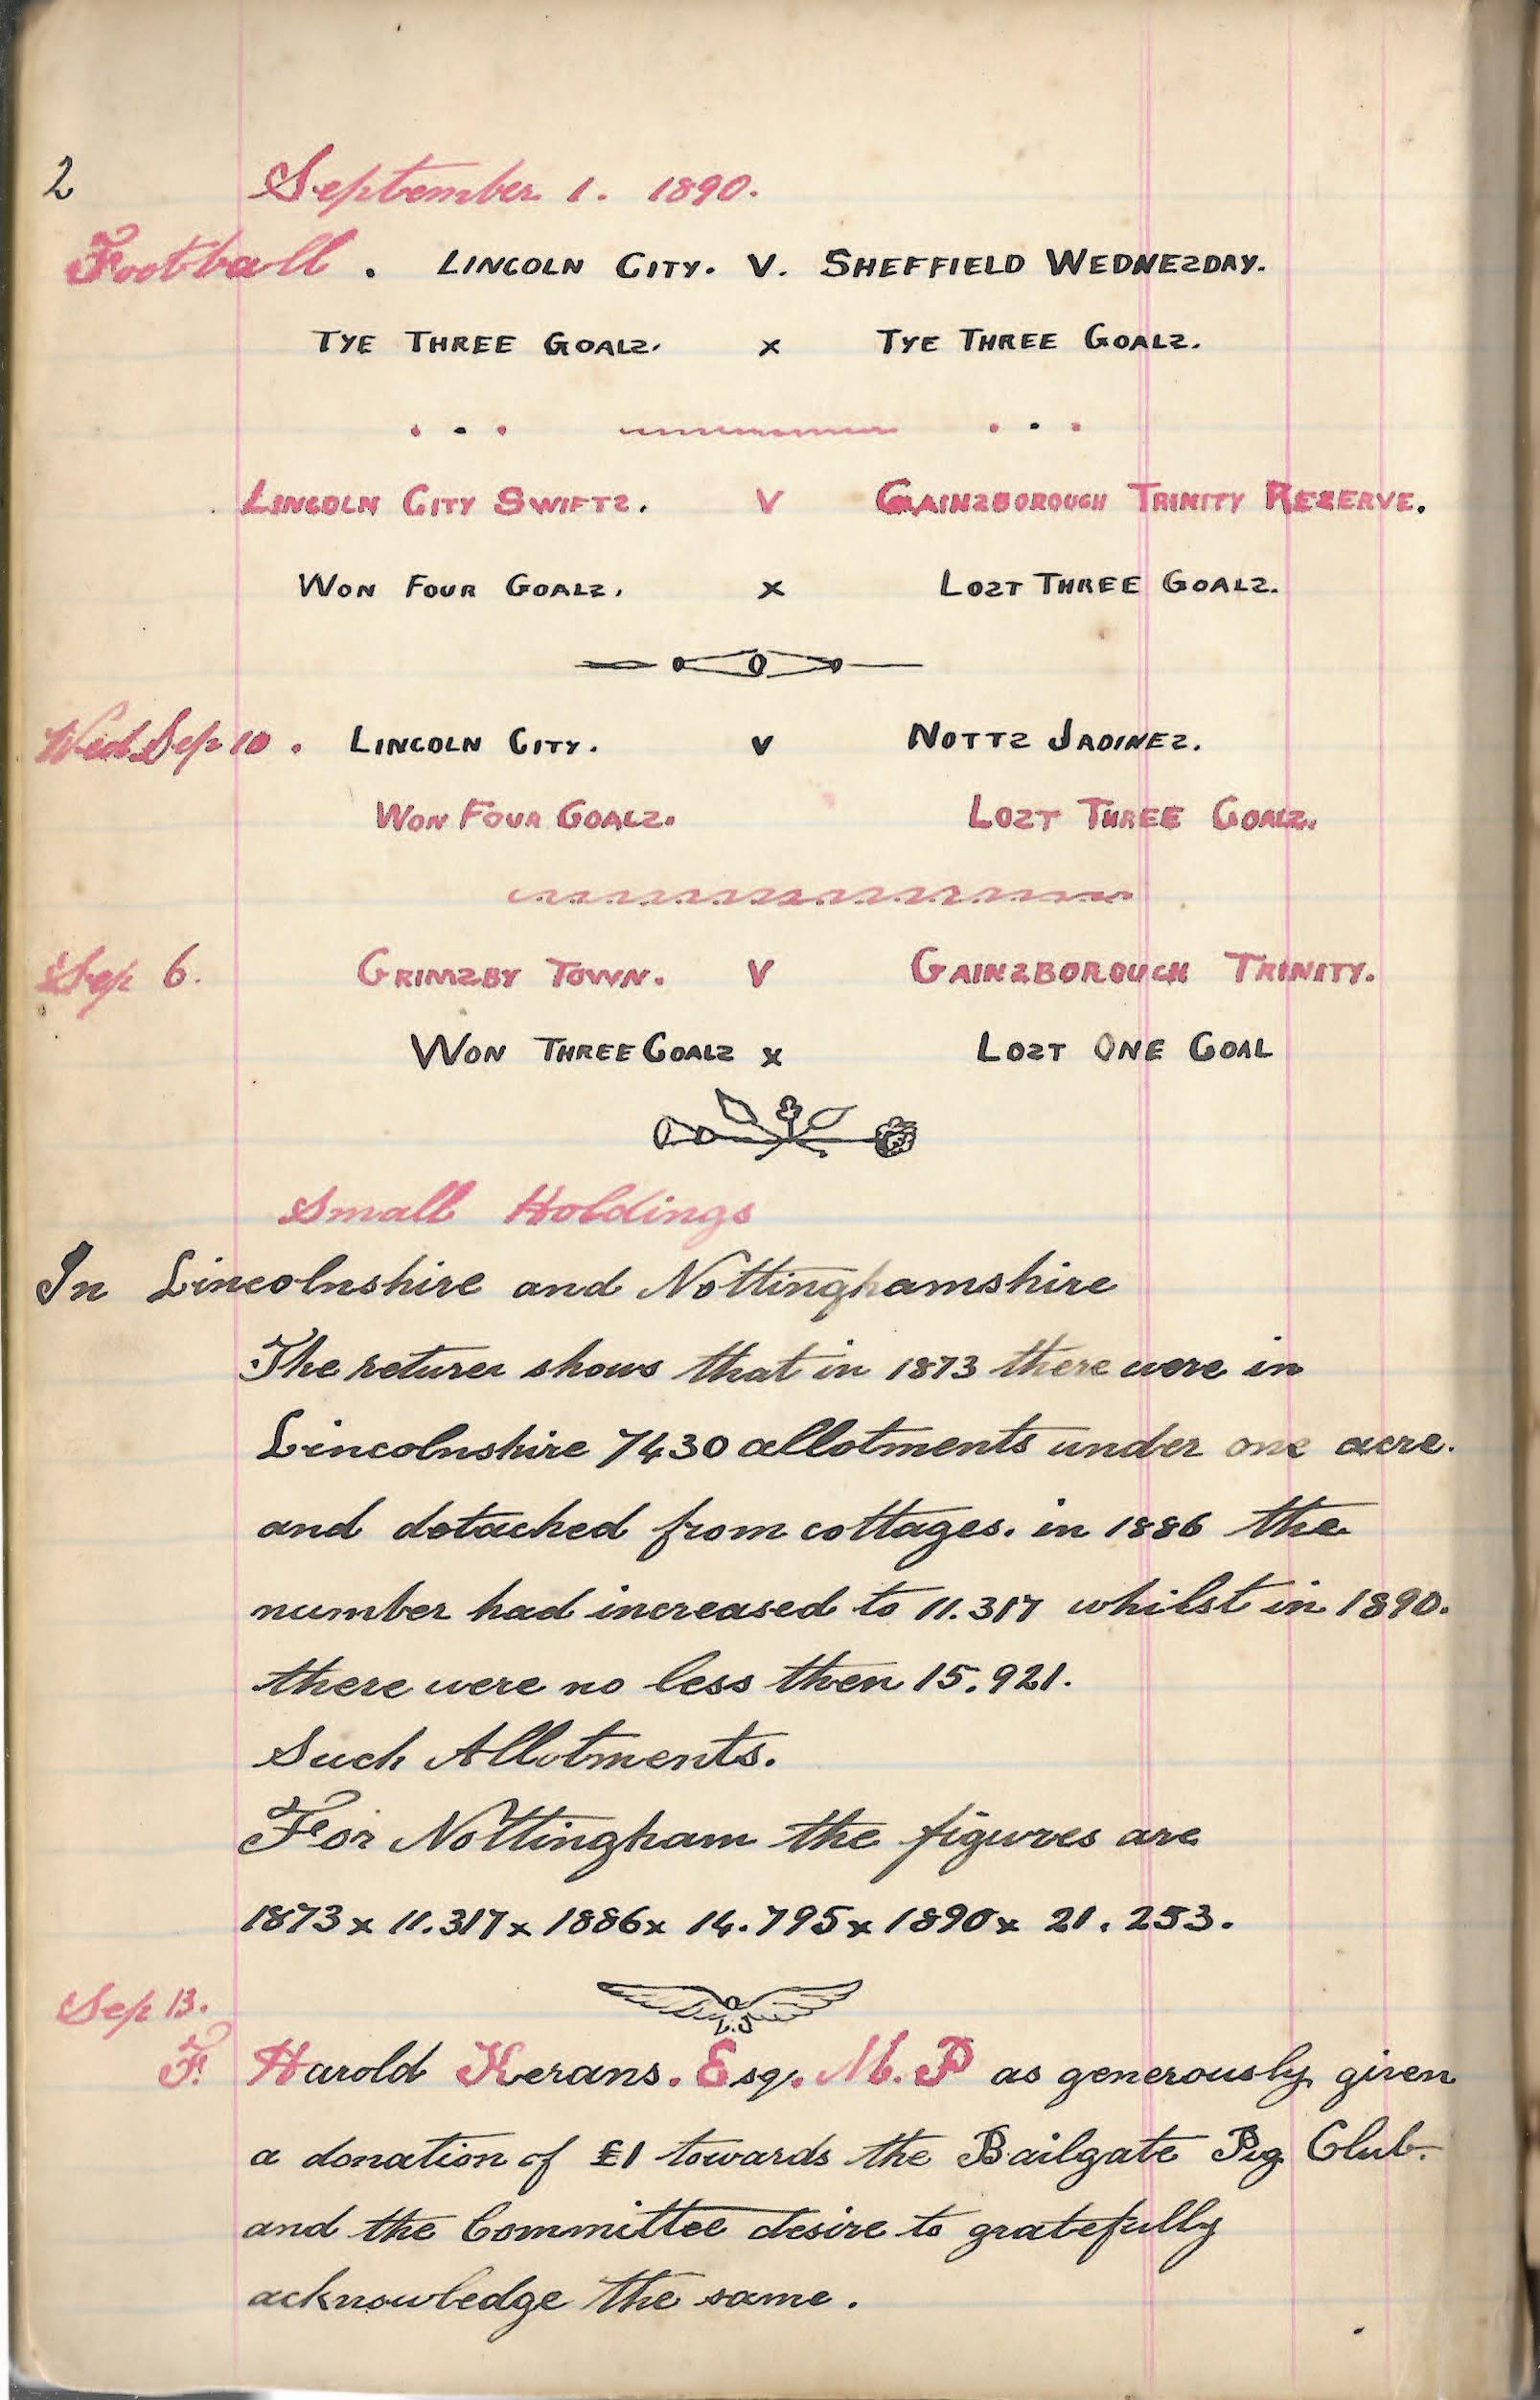 2 September 1. 1890.
Football. LINCOLN CITY. V. SHEFFIELD WEDNESDAY.
TYE THREE GOALS. x TYE THREE GOALS.
LINCOLN CITY SWIFTS. V GAINSBOROUGH TRINITY RESERVE.
WON FOUR GOALS. x LOST THREE GOALS.
Wed Sep 10. LINCOLN CITY. V NOTTS JADINES.
WON FOUR GOALS. LOST THREE GOALS.
Sep 6. GRIMSBY TOWN. V GAINSBOROUGH TRINITY.
WON THREE GOALS x LOST ONE GOAL
Small Holdings
In Lincolnshire and Nottinghamshire
The returen shows that in 1873 there were in
Lincolnshire 7430 allotments under one acre.
and detached from cottages. in 1886 the
number had increased to 11.317 whilst in 1890.
there were no less then 15.921.
Such Allotments.
For Nottingham the figures are
1873 x 11.317 x 1886 x 14.795 x 1890 x 21.253.
Sep 13.
F. Harold Kerans. Esq. M.P as generously given
a donation of £1 towards the Bailgate Pig Club.
and the Committee desire to gratefully
acknowledge the same.